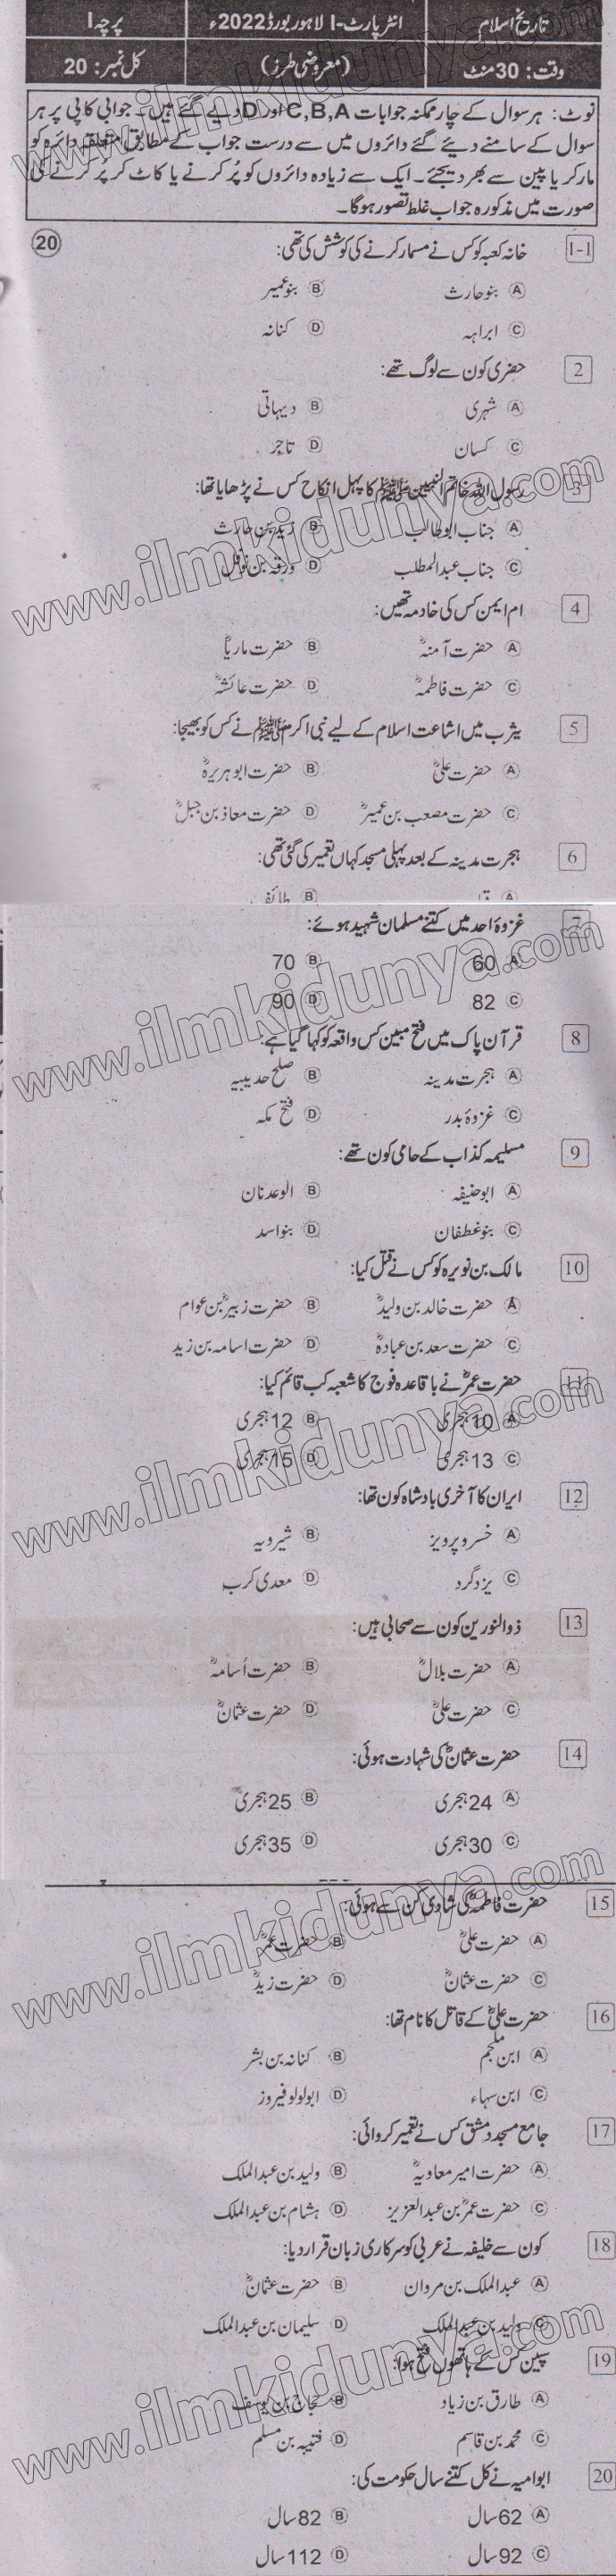 تاریخ اسلام انٹر پارٹ-I لاہور بورڈ 2022ء پرچہ I
وقت: 30 منٹ (معروضی طرز) کل نمبر: 20
نوٹ: ہر سوال کے چار ممکنہ جوابات C,B,A اور D دیے گئے ہیں۔ جوابی کاپی پر ہر
سوال کے سامنے دیئے گئے دائروں میں سے درست جواب کے مطابق متعلقہ دائرہ کو
مارکر یا پین سے بھر دیجئے۔ ایک سے زیادہ دائروں کو پُر کرنے یا کاٹ کر پُر کرنے کی
صورت میں مذکورہ جواب غلط تصور ہوگا۔
1-1 خانہ کعبہ کو کس نے مسمار کرنے کی کوشش کی تھی: 20
A بنو حارث B بنو عمیر
C ابراہہ D کنانہ
2 حضری کون سے لوگ تھے:
A شہری B دیہاتی
C کسان D تاجر
3 رسول اللہ خاتم النبیین ﷺ کا پہلا نکاح کس نے پڑھایا تھا:
A جناب ابو طالب B زید بن حارث
C جناب عبدالمطلب D ورقہ بن نوفل
4 ام ایمن کس کی خادمہ تھیں:
A حضرت آمنہؓ B حضرت ماریاؓ
C حضرت فاطمہؓ D حضرت عائشہؓ
5 یثرب میں اشاعت اسلام کے لیے نبی اکرم ﷺ نے کس کو بھیجا:
A حضرت علیؓ B حضرت ابو ہریرہؓ
C حضرت مصعب بن عمیرؓ D حضرت معاذ بن جبلؓ
6 ہجرت مدینہ کے بعد پہلی مسجد کہاں تعمیر کی گئی تھی:
A B طائف
7 غزوۂ احد میں کتنے مسلمان شہید ہوئے:
A 60 B 70
C 82 D 90
8 قرآن پاک میں فتح مبین کس واقعہ کو کہا گیا ہے:
A ہجرت مدینہ B صلح حدیبیہ
C غزوۂ بدر D فتح مکہ
9 مسلیمہ کذاب کے حامی کون تھے:
A ابو حنیفہ B الوعدنان
C بنو غطفان D بنو اسد
10 مالک بن نویرہ کو کس نے قتل کیا:
A حضرت خالد بن ولیدؓ B حضرت زبیرؓ بن عوام
C حضرت سعد بن عبادہؓ D حضرت اسامہ بن زید
11 حضرت عمرؓ نے باقاعدہ فوج کا شعبہ کب قائم کیا:
A 10 ہجری B 12 ہجری
C 13 ہجری D 15 ہجری
12 ایران کا آخری بادشاہ کون تھا:
A خسرو پرویز B شیرویہ
C یزدگرد D معدی کرب
13 ذوالنورین کون سے صحابی ہیں:
A حضرت بلالؓ B حضرت اُسامہؓ
C حضرت علیؓ D حضرت عثمانؓ
14 حضرت عثمانؓ کی شہادت ہوئی:
A 24 ہجری B 25 ہجری
C 30 ہجری D 35 ہجری
15 حضرت فاطمہؓ کی شادی کن سے ہوئی:
A حضرت علیؓ B حضرت عمرؓ
C حضرت عثمانؓ D حضرت زیدؓ
16 حضرت علیؓ کے قاتل کا نام تھا:
A ابن ملجم B کنانہ بن بشر
C ابن سہاء D ابولولو فیروز
17 جامع مسجد دمشق کس نے تعمیر کروائی:
A حضرت امیر معاویہؓ B ولید بن عبدالملک
C حضرت عمرؓ بن عبدالعزیز D ہشام بن عبدالملک
18 کون سے خلیفہ نے عربی کو سرکاری زبان قرار دیا:
A عبدالملک بن مروان B حضرت عثمانؓ
C ولید بن عبدالملک D سلیمان بن عبدالملک
19 سپین کس کے ہاتھوں فتح ہوا:
A طارق بن زیاد B حجاج بن یوسف
C محمد بن قاسم D قتیبہ بن مسلم
20 ابوامیہ نے کل کتنے سال حکومت کی:
A 62 سال B 82 سال
C 92 سال D 112 سال
www.ilmkidunya.com
www.ilmkidunya.com
www.ilmkidunya.com
www.ilmkidunya.com
www.ilmkidunya.com
www.ilmkidunya.com